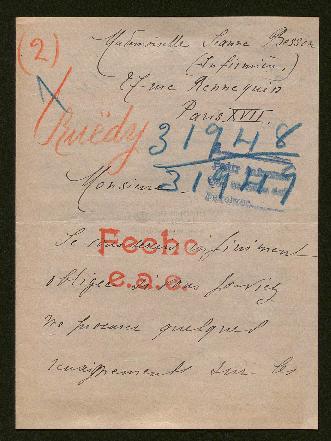 (2)
Mademoiselle Jeanne Besson
(Infirmière.)
27 rue Rennequin
Paris XVII.
Ruëdy
31948
31949
Monsieur
Je vous serais infiniment
obligée si vous pouviez
me procurer quelques
renseignements sur les
Feche
e.a.e.